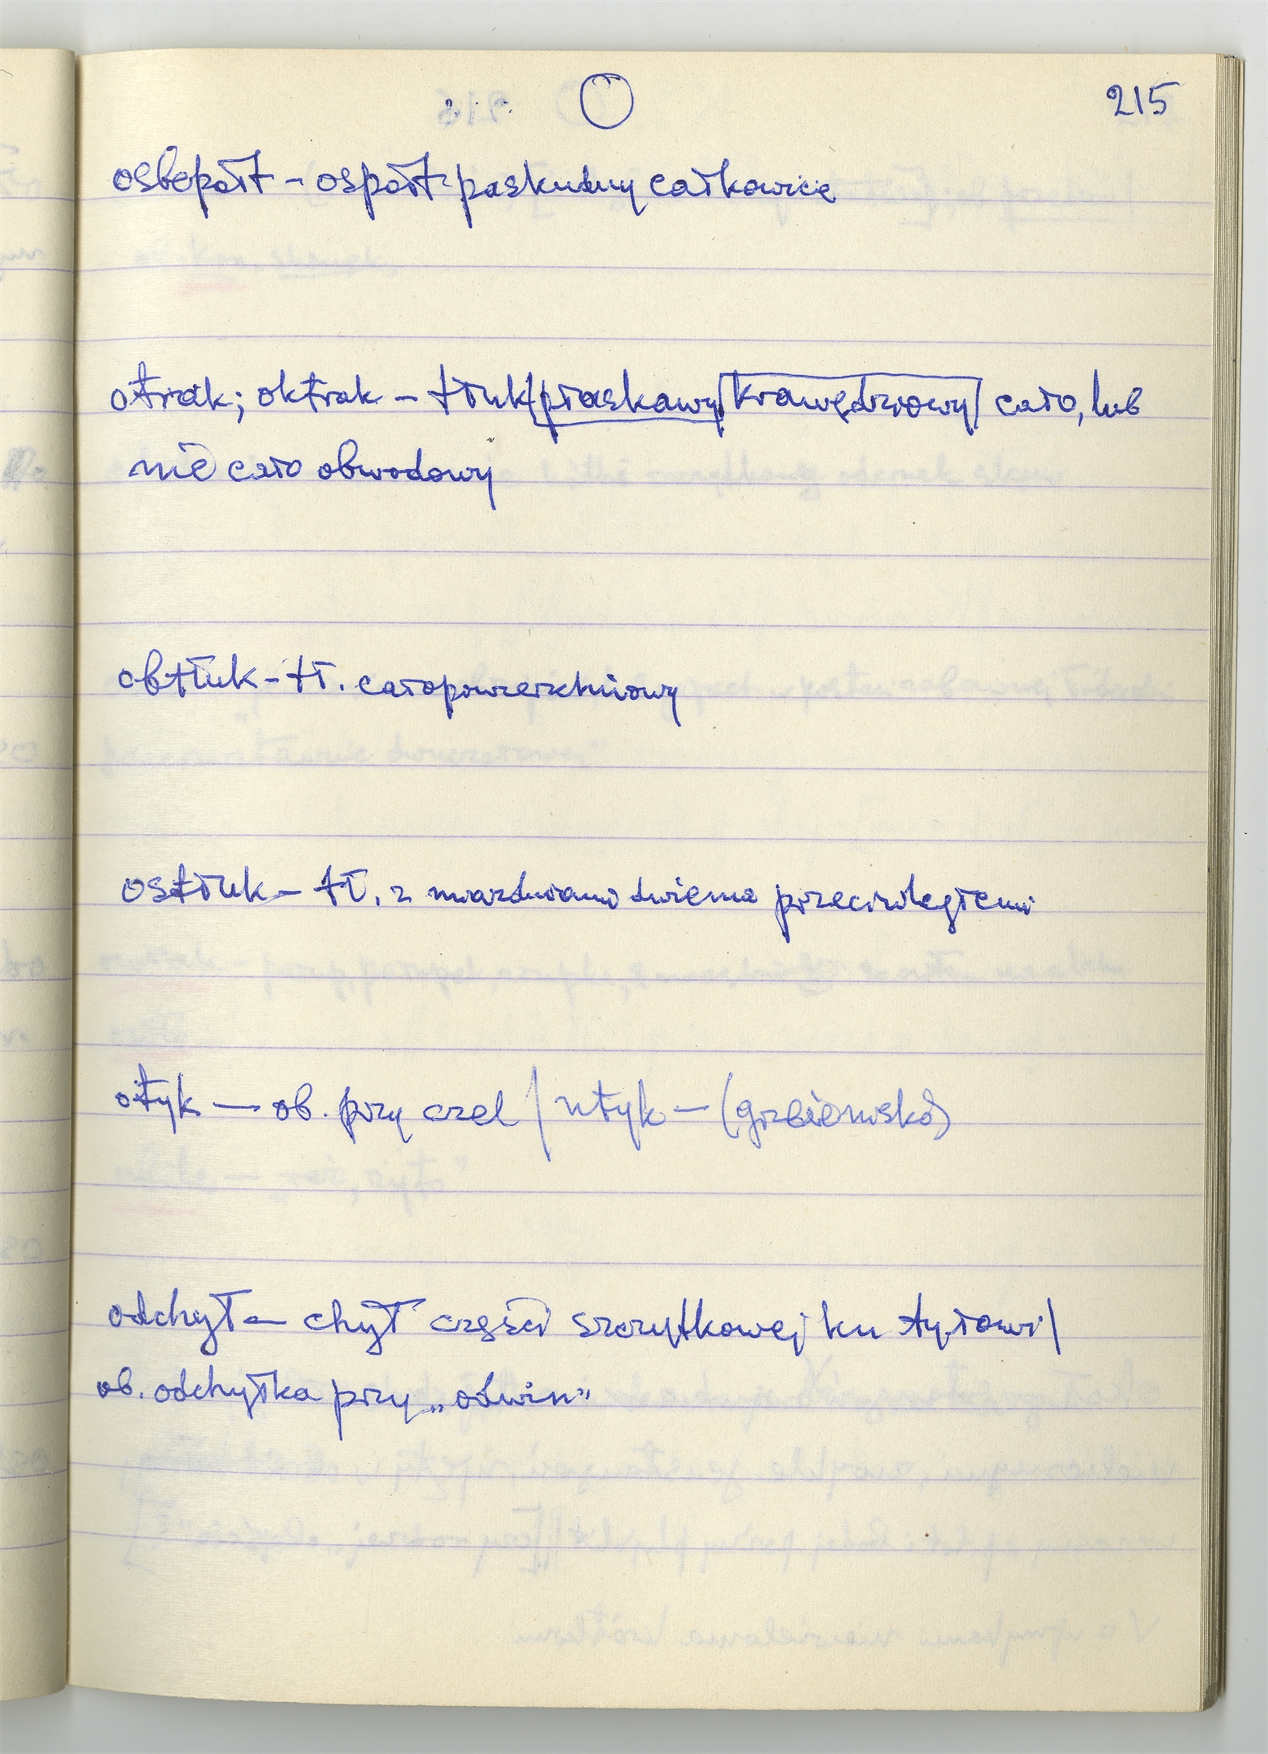 O 215
osbepołt – ospołt paskudny całkowice
otrak; oktrak – tłuk /płaskawy/ krawędziowy/ cało, lub
nie cało obwodowy
obtłuk – tł. całopowierzchniowy
ostłuk – tł. z dwiema przeciwległemi
otyk — ob. przy czel / utyk –
odchył – chył części szczytkowej ku tyłowi/
ob. odchyłka przy „odwin”